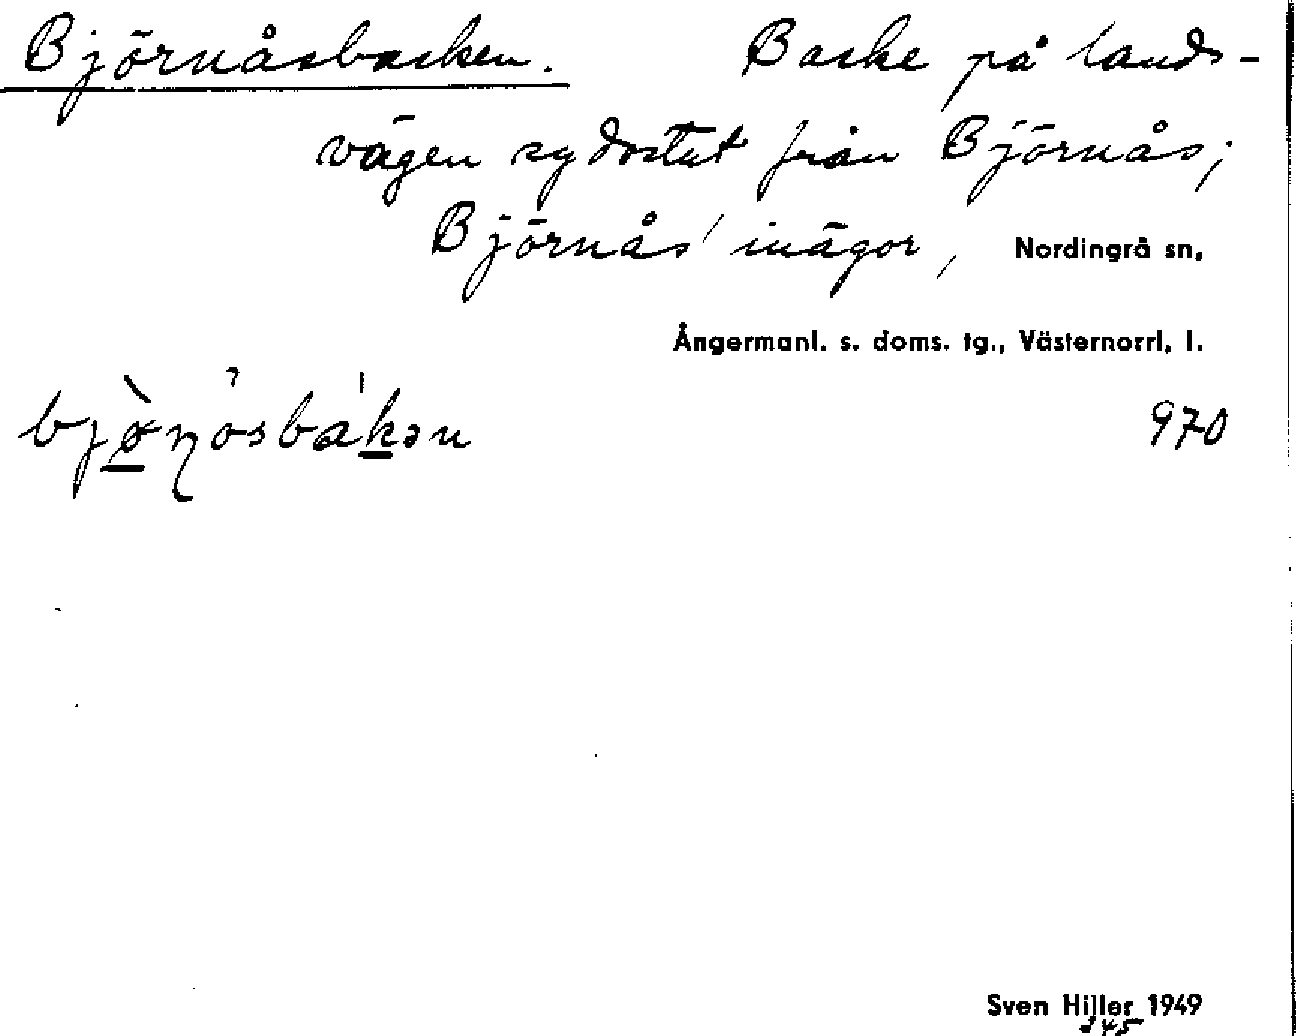 Björnåsbacken. Backe på lands-
vägen sydostut från Björnås;
Björnås' inägor, Nordingrå sn,
Ångermanl. s. doms. tg., Västernorrl. l.
bjò̲ṇåsbak̲ən 970
Sven Hiller 1949